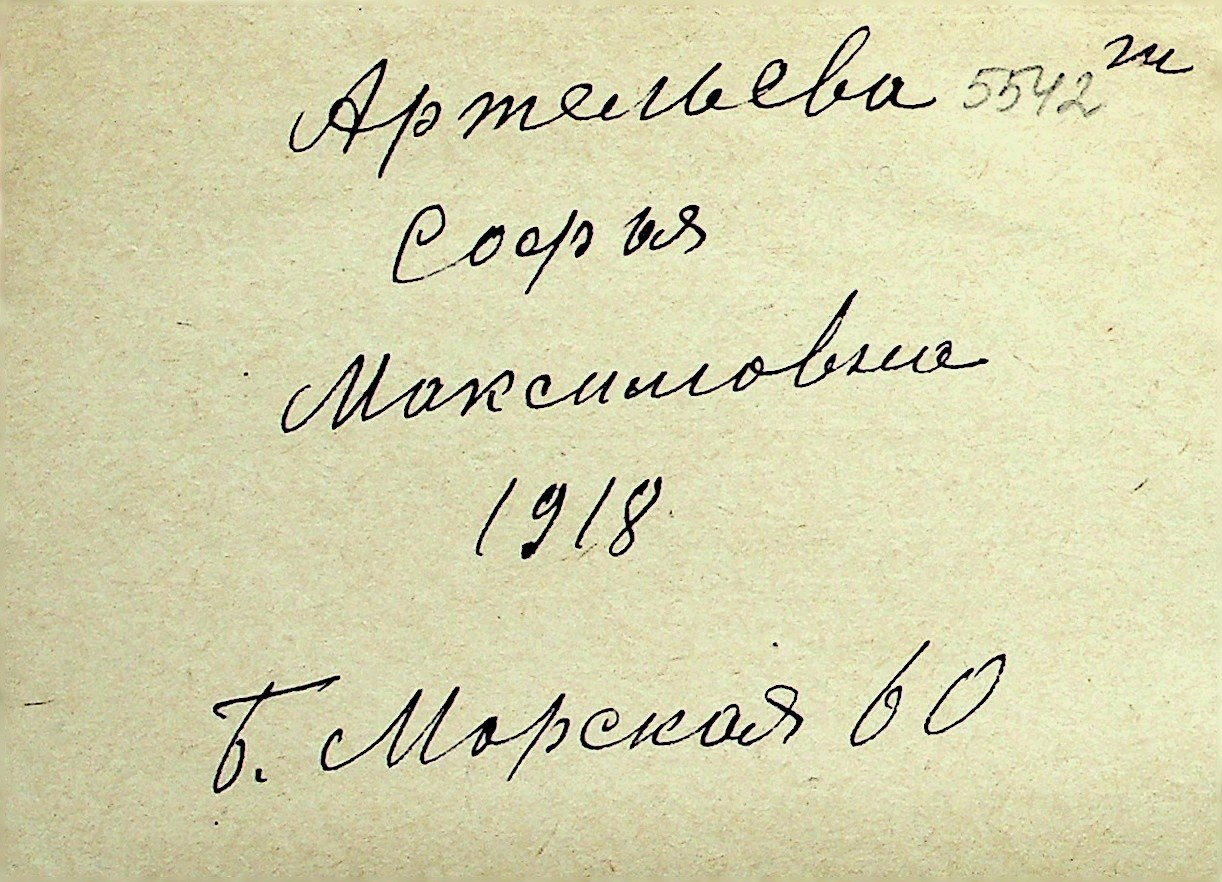 Артельева 5542 т
Софья
Максимовна
1918
Б. Морская 60